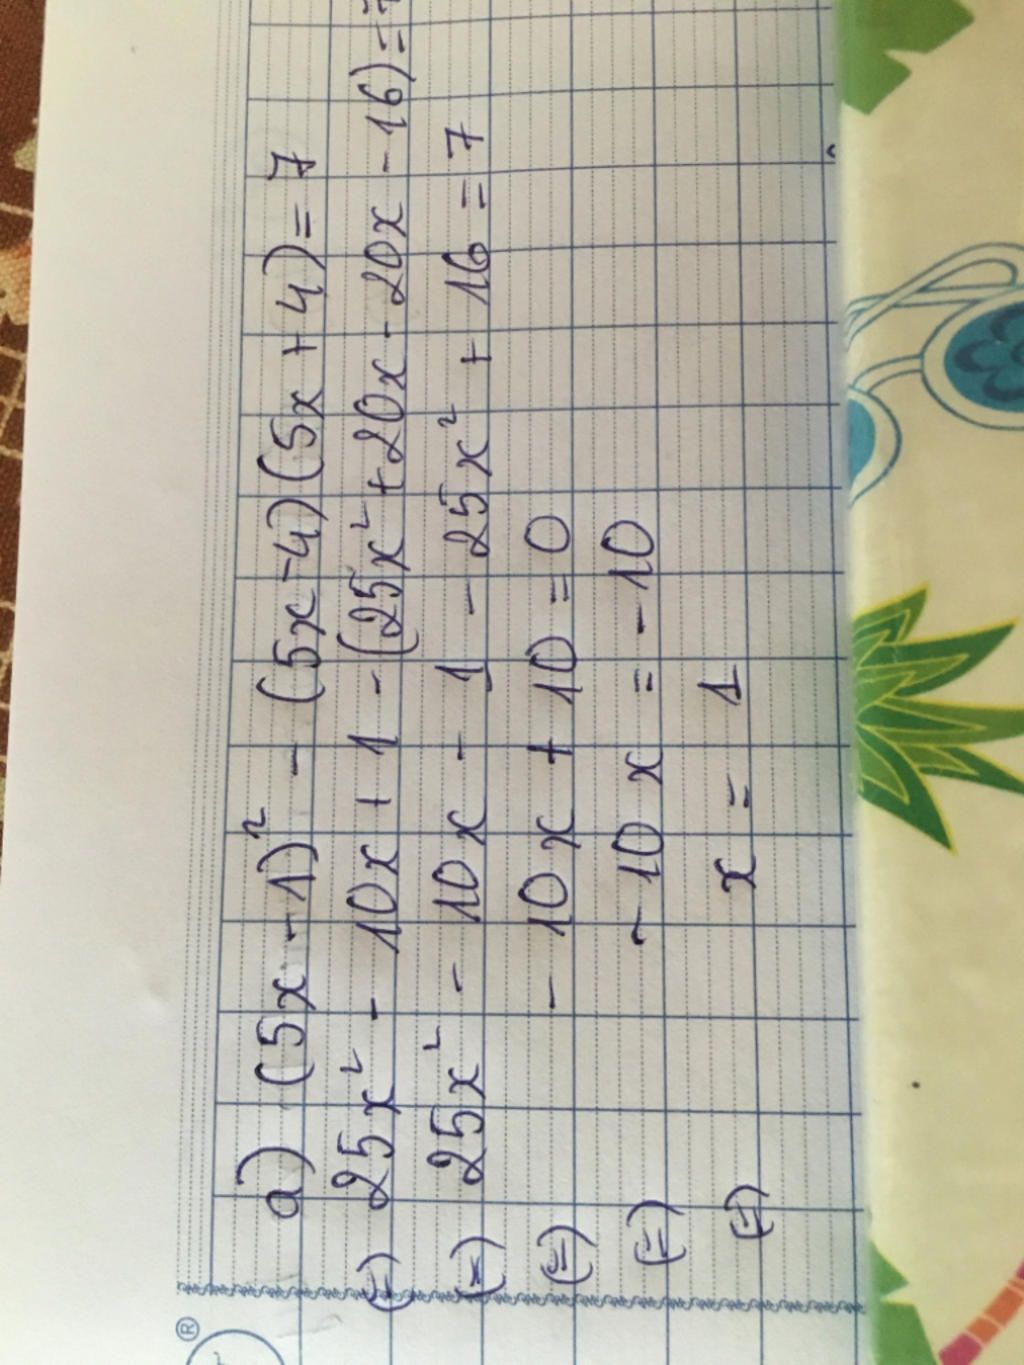 a) (5x - 1)² - (5x - 4)(5x + 4) = 7
(=) 25x² - 10x + 1 - (25x² + 20x - 20x - 16) = 7
(=) 25x² - 10x - 1 - 25x² + 16 = 7
(=) - 10x + 10 = 0
(=) - 10x = - 10
(=) x = 1
®